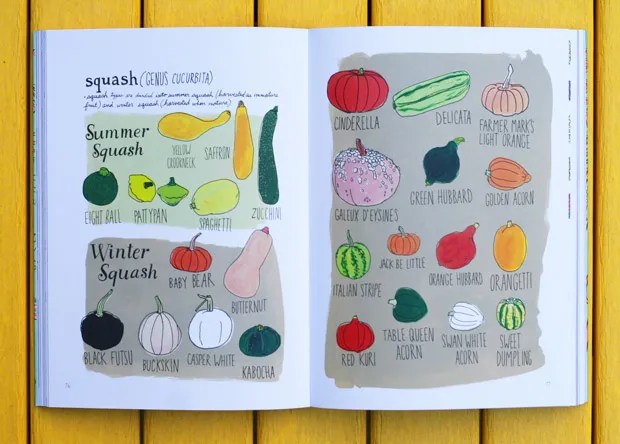 squash (GENUS CUCURBITA)
• squash types are divided into summer squash (harvested as immature
fruit) and winter squash (harvested when mature)
Summer
Squash
YELLOW
CROOKNECK
SAFFRON
EIGHT BALL
PATTYPAN
SPAGHETTI
ZUCCHINI
Winter
Squash
BABY BEAR
BUTTERNUT
BLACK FUTSU
BUCKSKIN
CASPER WHITE
KABOCHA
CINDERELLA
DELICATA
FARMER MARK'S
LIGHT ORANGE
GALEUX D'EYSINES
GREEN HUBBARD
GOLDEN ACORN
ITALIAN STRIPE
JACK BE LITTLE
ORANGE HUBBARD
ORANGETTI
RED KURI
TABLE QUEEN
ACORN
SWAN WHITE
ACORN
SWEET
DUMPLING